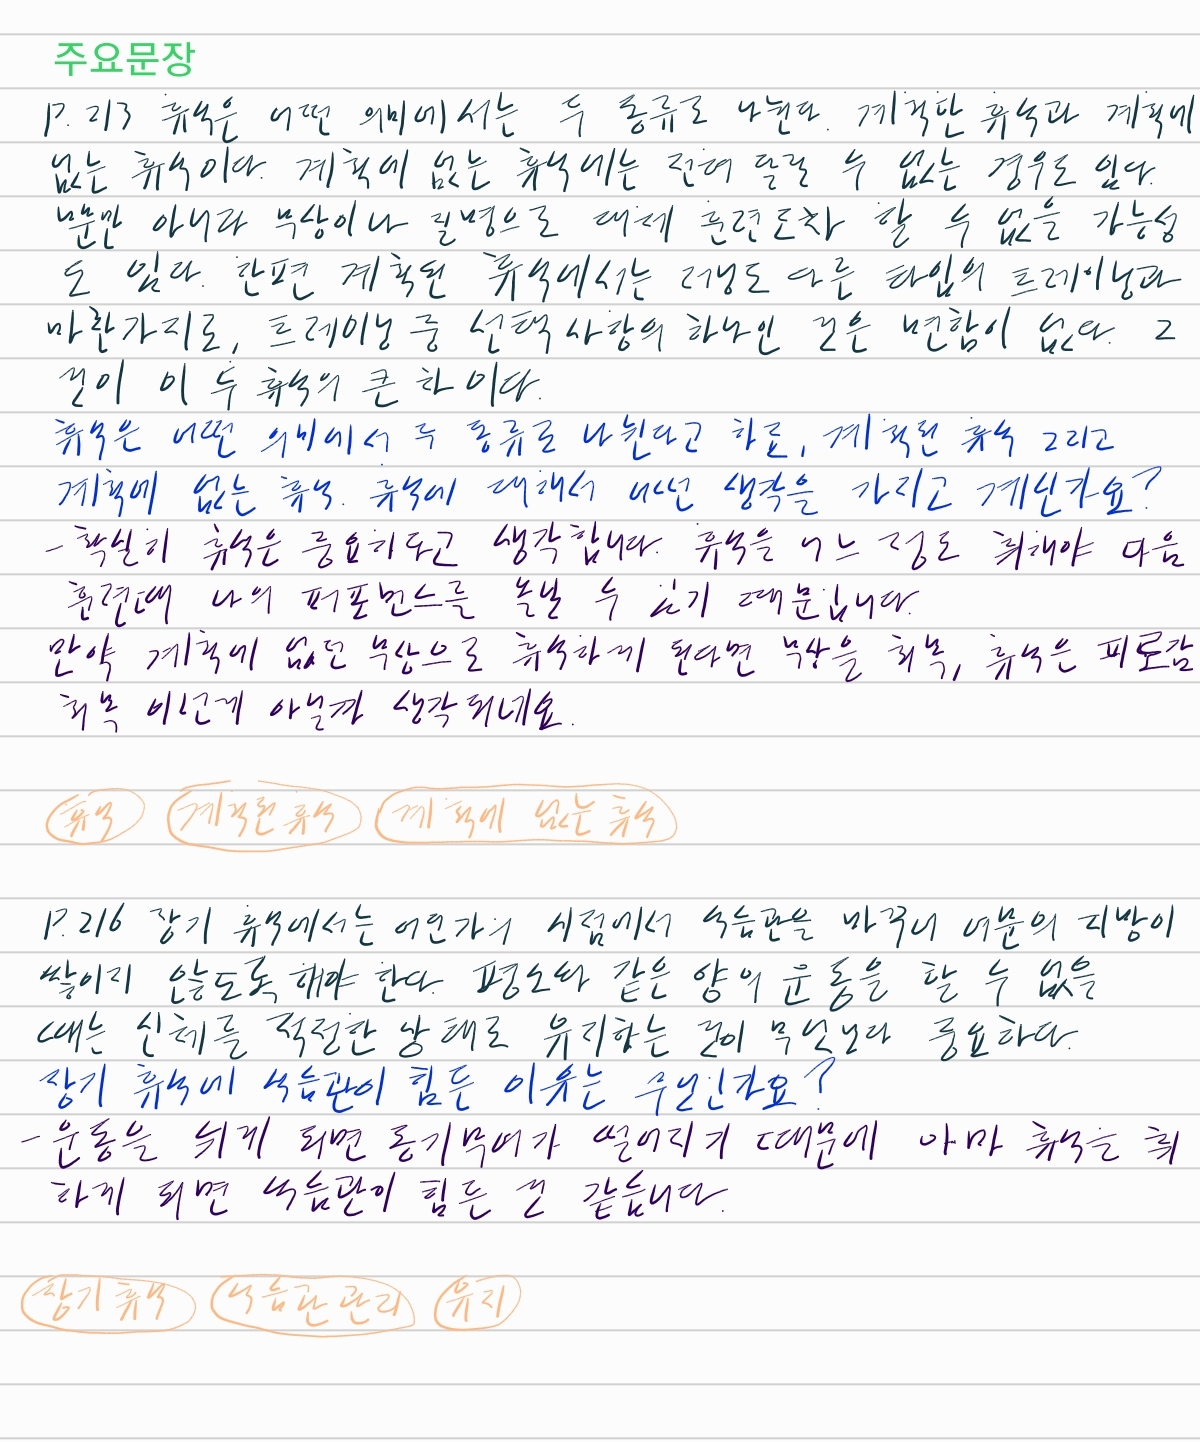 주요문장
P. 213 휴식은 어떤 의미에서는 두 종류로 나뉜다. 계획된 휴식과 계획에
없는 휴식이다. 계획에 없는 휴식에는 전혀 달릴 수 없는 경우도 있다.
뿐만 아니라 부상이나 질병으로 대체 훈련도차 할 수 없을 가능성
도 있다. 한편 계획된 휴식에서는 러닝도 다른 타입의 트레이닝과
마찬가지로, 트레이닝 중 선택사항의 하나인 것은 변함이 없다. 그
것이 이 두 휴식의 큰 차이다.
휴식은 어떤 의미에서 두 종류로 나뉜다고 하죠, 계획된 휴식 그리고
계획에 없는 휴식. 휴식에 대해서 어떤 생각을 가지고 계신가요?
- 확실히 휴식은 중요하다고 생각합니다. 휴식을 어느 정도 취해야 다음
훈련때 나의 퍼포먼스를 높일 수 있기 때문입니다.
만약 계획에 없던 부상으로 휴식하게 된다면 부상을 회복, 휴식은 피로감
회복 이런게 아닐까 생각되네요.
휴식 계획된 휴식 계획에 없는 휴식
P. 216 장기 휴식에서는 어딘가의 시점에서 식습관을 바꾸어 여분의 지방이
쌓이지 않도록 해야 한다. 평소와 같은 양의 운동을 할 수 없을
때는 신체를 적절한 상태로 유지하는 것이 무엇보다 중요하다.
장기 휴식에 식습관이 힘든 이유는 무엇인가요?
- 운동을 쉬게 되면 동기부여가 떨어지기 때문에 아마 휴식을 취
하게 되면 식습관이 힘든 것 같습니다.
장기 휴식 식습관 관리 유지